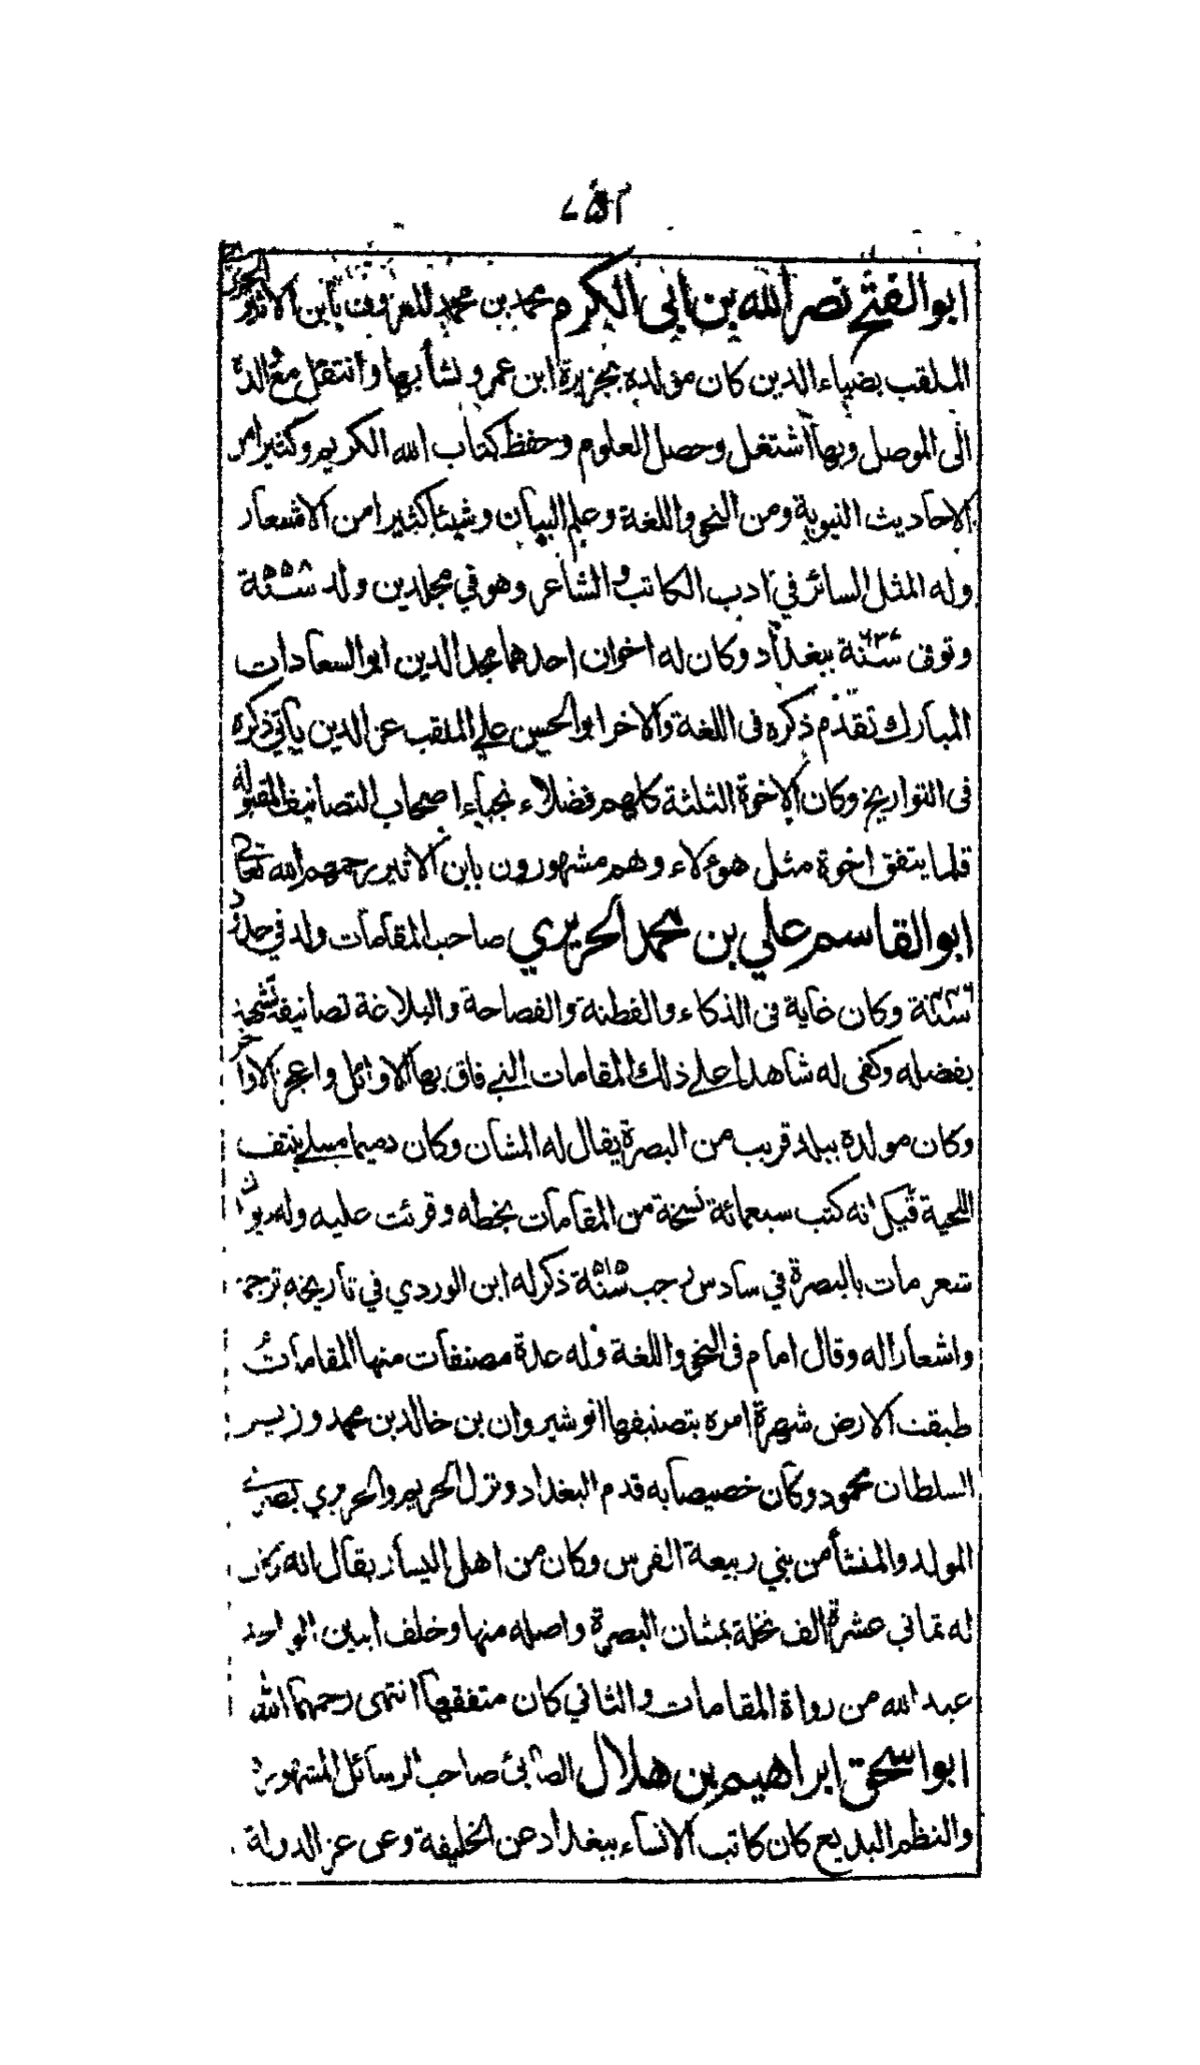 ٧٥٢
ابو الفتح نصر الله بن ابى الكرم محمد بن محمد المعروف بابن الاثير الجزري
الملقب بضياء الدين كان مولده بجزيرة ابن عمر و نشأ بها و انتقل مع والده
الى الموصل وبها اشتغل وحصل العلوم وحفظ كتاب الله الكريم وكثيرا من
الاحاديث النبوية ومن النحو واللغة وعلم البيان وشيئا كثيرا من الاشعار
وله المثل السائر في ادب الكاتب والشاعر وهو في مجلدين ولد سنة ٥٥٨
وتوفى سنة ٦٣٧ ببغداد وكان له اخوان احدهما مجد الدين ابو السعادات
المبارك تقدم ذكره فى اللغة والاخر ابو الحسين علي الملقب عز الدين يأتي ذكره
فى التواريخ وكان الاخوة الثلثة كلهم فضلاء نجباء اصحاب التصانيف المقبولة
قلما يتفق اخوة مثل هؤلاء وهم مشهورون بابن الاثير رحمهم الله تعالى
ابو القاسم علي بن محمد الحريري صاحب المقامات ولد في حدود
سنة ٤٤٦ وكان غاية فى الذكاء والفطنة والفصاحة والبلاغة تصانيفه تشهد
بفضله وكفى له شاهدا على ذلك المقامات التي فاق بها الاوائل واعجز الاواخر
وكان مولده ببلد قريب من البصرة يقال له المشان وكان دميما مبتلى بنتف
اللحية قيل انه كتب سبعمائة نسخة من المقامات بخطه وقرئت عليه وله ديوان
شعر مات بالبصرة في سادس رجب سنة ٥١٥ ذكر له ابن الوردي في تاريخه ترجمة
واشعارا له وقال امام فى النحو واللغة وله عدة مصنفات منها المقامات
طبقت الارض شهرة امره بتصنيفها انوشيروان بن خالد بن محمد وزير
السلطان محمود وكان خصيصا به قدم البغداد ونزل الحريم والحريري بصري
المولد والمنشأ من بني ربيعة الفرس وكان من اهل اليسار يقال انه كان
له ثماني عشرة الف نخلة بمشان البصرة واصله منها وخلف ابنين الواحد
عبد الله من رواة المقامات والثاني كان متفقها انتهى رحمهما الله
ابو اسحق ابراهيم بن هلال الصابئ صاحب الرسائل المشهورة
والنظم البديع كان كاتب الانشاء ببغداد عن الخليفة وعن عز الدولة